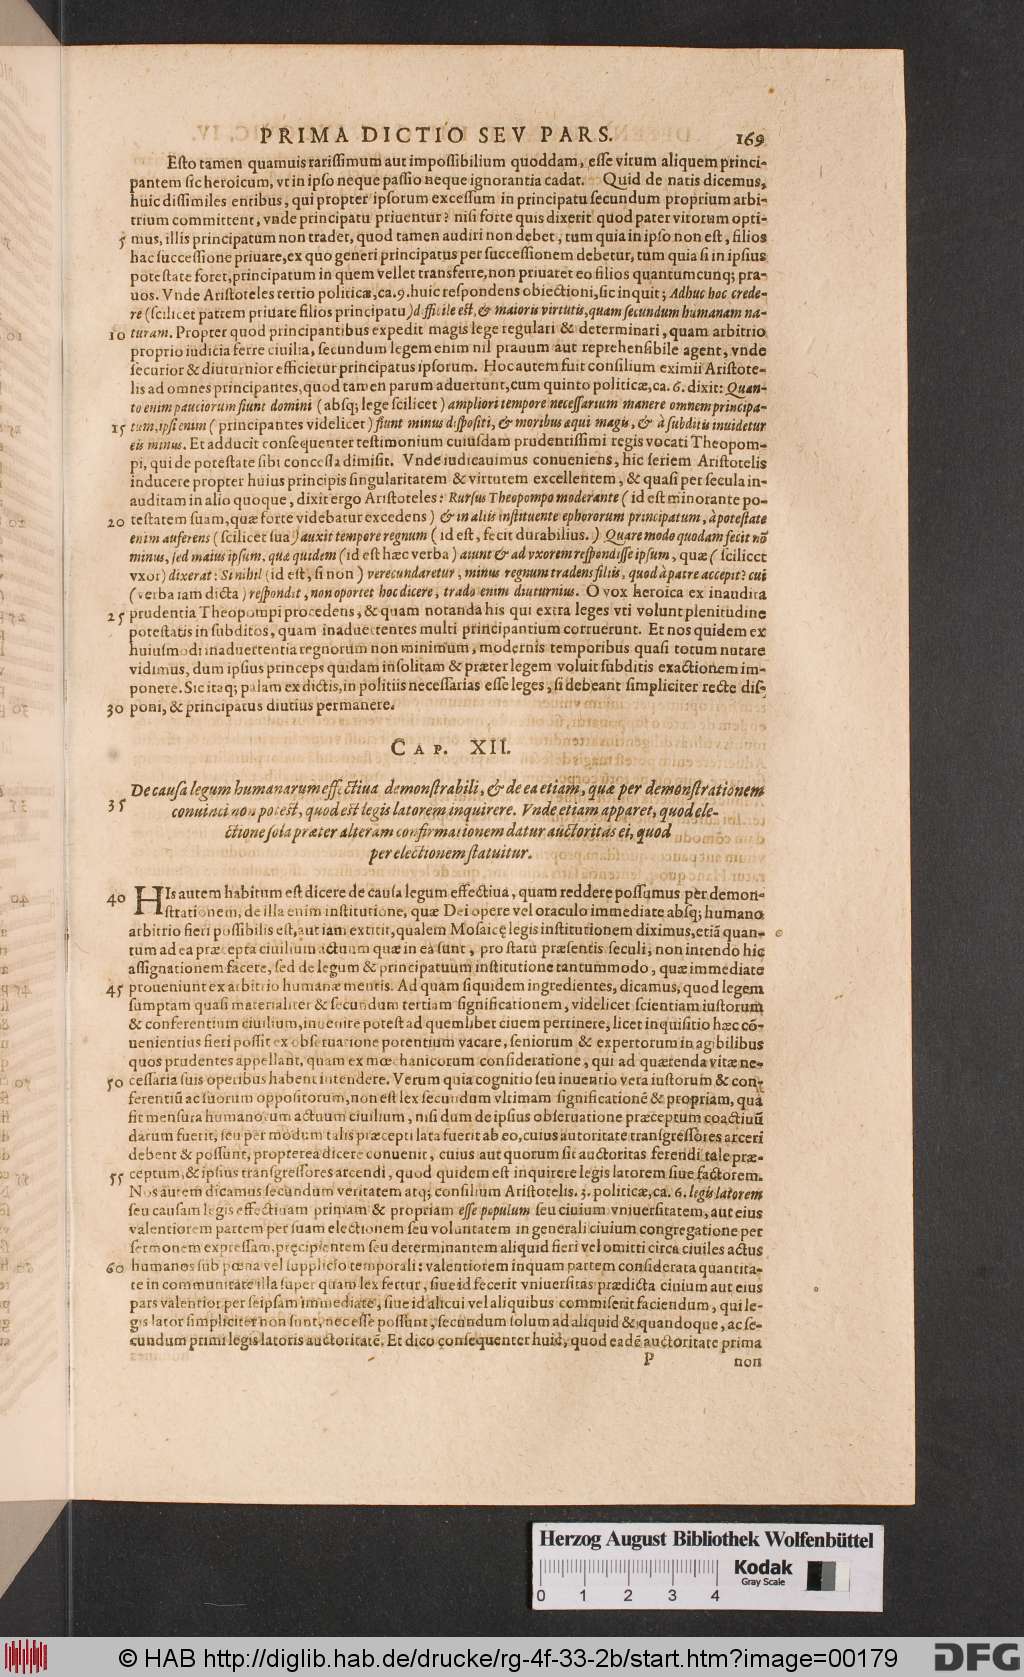 PRIMA DICTIO SEV PARS. 169
Esto tamen quamuis rarissimum aut impossibilium quoddam, esse virum aliquem princi-
pantem sic heroicum, vt in ipso neque passio neque ignorantia cadat. Quid de natis dicemus,
huic dissimiles entibus, qui propter ipsorum excessum in principatu secundum proprium arbi-
trium committent, vnde principatu priuentur? nisi forte quis dixerit quod pater virorum opti-
5 mus, illis principatum non trader, quod tamen audiri non debet, tum quia in ipso non est, filios
hac successione priuare, ex quo generi principatus per successionem debetur, tùm quia si in ipsius
potestate foret, principatum in quem vellet transferre, non priuaret eo filios quantumcunq; pra-
uos. Vnde Aristoteles tertio politicæ, ca. 9. huic respondens obiectioni, sic inquit; Adhuc hoc crede-
re (scilicet patrem priuare filios principatu) d fficile est, & maioris virtutis, quam secundum humanam na-
10 turam. Propter quod principantibus expedit magis lege regulari & determinari, quam arbitrio
proprio iudicia ferre ciuilia, secundum legem enim nil prauum aut reprehensibile agent, vnde
securior & diuturnior efficietur principatus ipsorum. Hoc autem fuit consilium eximii Aristote-
lis ad omnes principantes, quod tamen parum aduertunt, cum quinto politicæ, ca. 6. dixit: Quan-
to enim pauciorum fiunt domini (absq; lege scilicet) ampliori tempore necessarium manere omnem principa-
15 tum, ipsi enim (principantes videlicet) fiunt minus dispositi, & moribus æqui magis, & à subditis inuidetur
eis minus. Et adducit consequenter testimonium cuiusdam prudentissimi regis vocati Theopom-
pi, qui de potestate sibi concessa dimisit. Vnde iudicauimus conueniens, hic seriem Aristotelis
inducere propter huius principis singularitatem & virtutem excellentem, & quasi per secula in-
auditam in alio quoque, dixit ergo Aristoteles: Rursus Theopompo moderante (id est minorante po-
20 testatem suam, quæ forte videbatur excedens) & in aliis instituente ephororum principatum, à potestate
enim auferens (scilicet sua) auxit tempore regnum (id est, fecit durabilius.) Quare modo quodam fecit nō
minus, sed maius ipsum. quæ quidem (id est hæc verba) aiunt & ad vxorem respondisse ipsum, quæ (scilicet
vxor) dixerat: Si nihil (id est, si non) verecundaretur, minus regnum tradens filiis, quod à patre accepit? cui
(verba iam dicta) respondit, non oportet hoc dicere, trado enim diuturnius. O vox heroica ex inaudita
25 prudentia Theopompi procedens, & quam notanda his qui extra leges vti volunt plenitudine
potestatis in subditos, quam inaduertentes multi principantium corruerunt. Et nos quidem ex
huiusmodi inaduertentia regnorum non minimum, modernis temporibus quasi totum nutare
vidimus, dum ipsius princeps quidam insolitam & præter legem voluit subditis exactionem im-
ponere. Sic itaq; palam ex dictis, in politiis necessarias esse leges, si debeant simpliciter recte dis-
30 poni, & principatus diutius permanere.
CAP. XII.
De causa legum humanarum effectiua demonstrabili, & de ea etiam, quæ per demonstrationem
35 conuinci non potest, quod est legis latorem inquirere. Vnde etiam apparet, quod ele-
ctione sola præter alteram confirmationem datur auctoritas ei, quod
per electionem statuitur.
40 HIs autem habitum est dicere de causa legum effectiua, quam reddere possumus per demon-
strationem, de illa enim institutione, quæ Dei opere vel oraculo immediate absq; humano
arbitrio fieri possibilis est, aut iam extitit, qualem Mosaicę legis institutionem diximus, etiã quan-
tum ad ea præcepta ciuilium actuum quæ in ea sunt, pro statu præsentis seculi, non intendo hic
assignationem facere, sed de legum & principatuum institutione tantummodo, quæ immediate
45 proueniunt ex arbitrio humanæ mentis. Ad quam siquidem ingredientes, dicamus, quod legem
sumptam quasi materialiter & secundum tertiam significationem, videlicet scientiam iustorum
& conferentium ciuilium, inuenire potest ad quemlibet ciuem pertinere, licet inquisitio hæc cō-
uenientius fieri possit ex obseruatione potentium vacare, seniorum & expertorum in agibilibus
quos prudentes appellant, quam ex mœchanicorum consideratione, qui ad quærenda vitæ ne-
50 cessaria suis operibus habent intendere. Verum quia cognitio seu inuentio vera iustorum & con-
ferentiū ac suorum oppositorum, non est lex secundum vltimam significationē & propriam, qua
sit mensura humanorum actuum ciuilium, nisi dum de ipsius obseruatione præceptum coactiuū
datum fuerit, seu per modum talis præcepti lata fuerit ab eo, cuius autoritate transgressores arceri
debent & possunt, propterea dicere conuenit, cuius aut quorum sit auctoritas ferendi tale præ-
55 ceptum, & ipsius transgressores arcendi, quod quidem est inquirere legis latorem siue factorem.
Nos autem dicamus secundum veritatem atq; consilium Aristotelis. 3. politicæ, ca. 6. legis latorem
seu causam legis effectiuam primam & propriam esse populum seu ciuium vniuersitatem, aut eius
valentiorem partem per suam electionem seu voluntatem in generali ciuium congregatione per
sermonem expressam, pręcipientem seu determinantem aliquid fieri vel omitti circa ciuiles actus
60 humanos sub pœna vel supplicio temporali: valentiorem inquam partem considerata quantita-
te in communitate illa super quam lex fertur, siue id fecerit vniuersitas prædicta ciuium aut eius
pars valentior per seipsam immediate, siue id alicui vel aliquibus commiserit faciendum, qui le-
gis lator simpliciter non sunt, nec esse possunt, secundum solum ad aliquid & quandoque, ac se-
cundum primi legis latoris auctoritatē. Et dico consequenter huic, quod eadē auctoritate prima
P non
Herzog August Bibliothek Wolfenbüttel
Kodak
Gray Scale
0 1 2 3 4
© HAB http://diglib.hab.de/drucke/rg-4f-33-2b/start.htm?image=00179
DFG